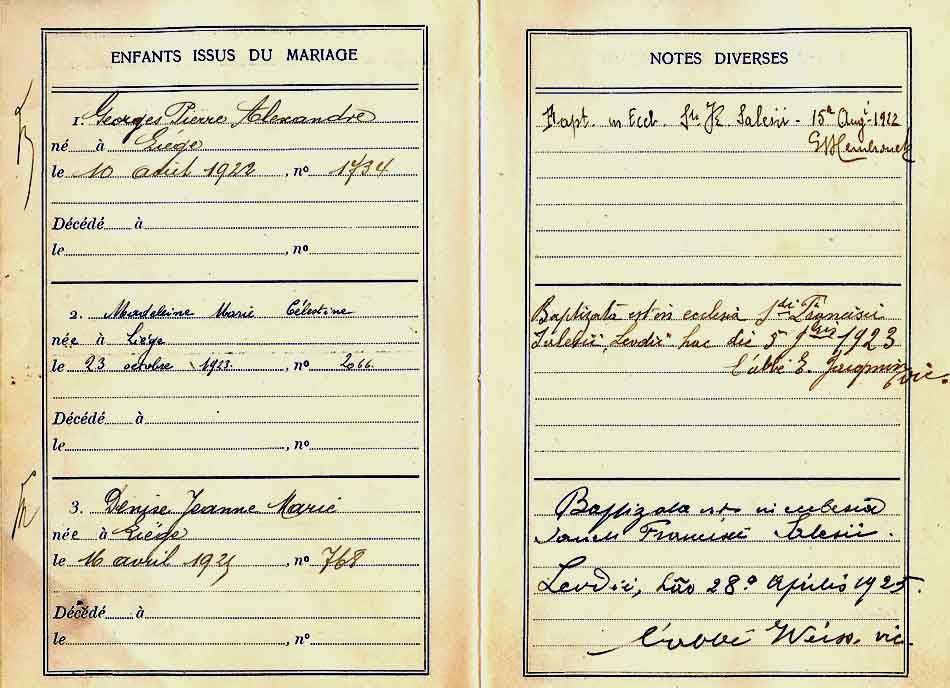 ENFANTS ISSUS DU MARIAGE
1. Georges Pierre Alexandre
né à Liége
le 10 août 1922, nº 1734
Décédé à
le , nº
2. Madeleine Marie Célestine
née à Liége
le 23 octobre 1923, nº 2066
Décédé à
le , nº
3. Denise Jeanne Marie
née à Liége
le 16 avril 1925, nº 768
Décédé à
le , nº
NOTES DIVERSES
Bapt. in Eccl. Sti Salesii - 15a Aug. 1922
Baptizata est in ecclesia Sti Francisci
Salesii, Leodii hac die 5 1923
L'abbé E. Jacqmin, vic.
Baptizata est in ecclesia
Sancti Francisci Salesii.
Leodii, hac 28a Aprilis 1925.
l'abbé Weiss. vic.